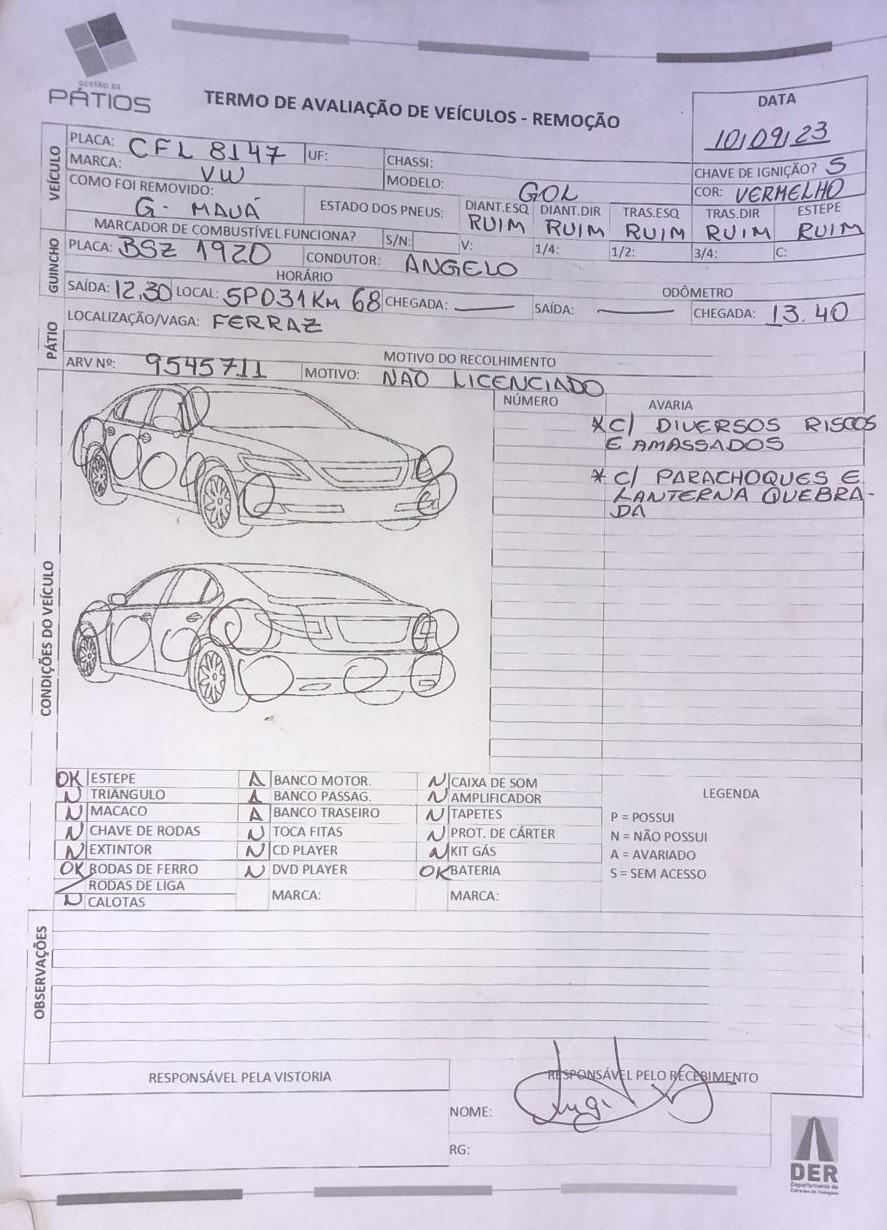 GESTÃO DE
PÁTIOS
TERMO DE AVALIAÇÃO DE VEÍCULOS - REMOÇÃO
DATA
10/09/23
VEÍCULO
PLACA: CFL 8147 UF: CHASSI: CHAVE DE IGNIÇÃO? S
MARCA: VW MODELO: GOL COR: VERMELHO
COMO FOI REMOVIDO: G- MAUÁ ESTADO DOS PNEUS: DIANT.ESQ RUIM DIANT.DIR RUIM TRAS.ESQ RUIM TRAS.DIR RUIM ESTEPE RUIM
MARCADOR DE COMBUSTÍVEL FUNCIONA? S/N: V: 1/4: 1/2: 3/4: C:
GUINCHO
PLACA: BSZ 1920 CONDUTOR: ANGELO
HORÁRIO ODÔMETRO
SAÍDA: 12.30 LOCAL: SP031 Km 68 CHEGADA: SAÍDA: CHEGADA: 13.40
PÁTIO
LOCALIZAÇÃO/VAGA: FERRAZ
MOTIVO DO RECOLHIMENTO
ARV Nº: 9545711 MOTIVO: NÃO LICENCIADO
CONDIÇÕES DO VEÍCULO
NÚMERO AVARIA
* C/ DIVERSOS RISCOS
E AMASSADOS
* C/ PARACHOQUES E
LANTERNA QUEBRA-
DA
OK ESTEPE A BANCO MOTOR. N CAIXA DE SOM LEGENDA
N TRIÂNGULO A BANCO PASSAG. N AMPLIFICADOR
N MACACO A BANCO TRASEIRO N TAPETES P = POSSUI
N CHAVE DE RODAS N TOCA FITAS N PROT. DE CÁRTER N = NÃO POSSUI
N EXTINTOR N CD PLAYER N KIT GÁS A = AVARIADO
OK RODAS DE FERRO N DVD PLAYER OK BATERIA S = SEM ACESSO
RODAS DE LIGA MARCA: MARCA:
N CALOTAS
OBSERVAÇÕES
RESPONSÁVEL PELA VISTORIA RESPONSÁVEL PELO RECEBIMENTO
NOME:
RG:
DER
Departamento de
Estradas de Rodagem